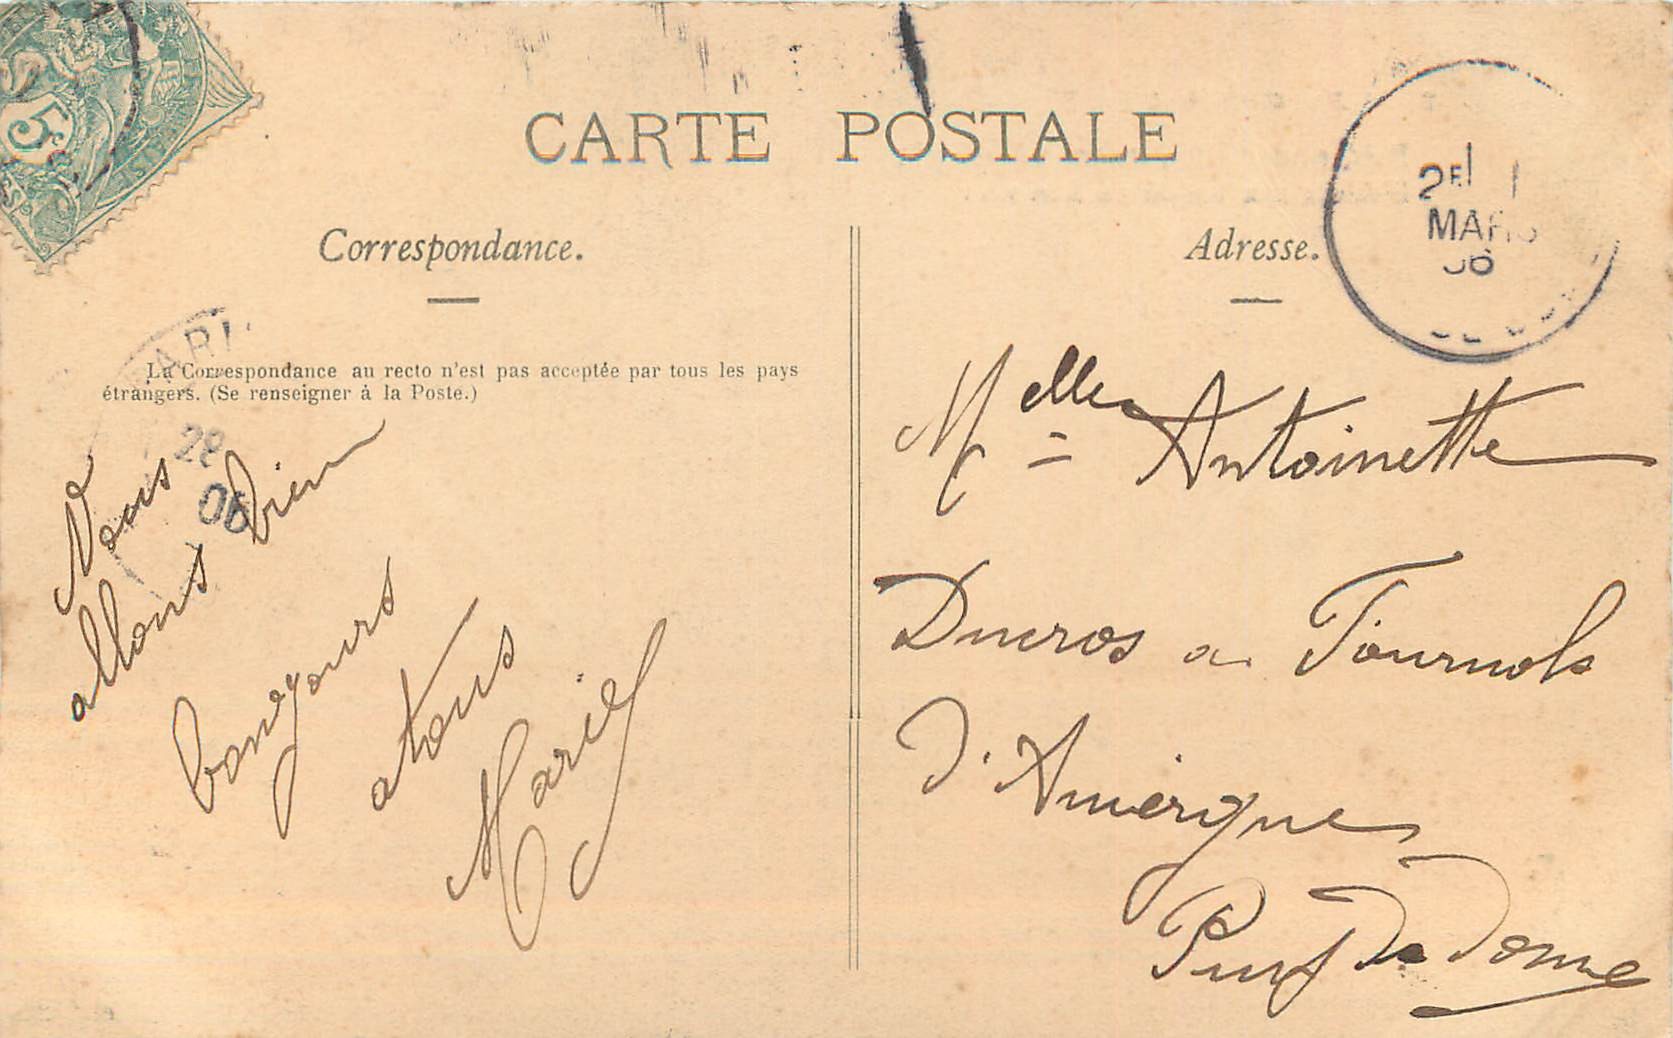 5c
CARTE POSTALE
Correspondance.
La Correspondance au recto n'est pas acceptée par tous les pays
étrangers. (Se renseigner à la Poste.)
28
06
Nous
allons bien
bonjours
atous
Marie
Adresse.
2E 1
MARS
06
Melle Antoinette
Ducros a Fournols
d'Amérigues
Puy De Dome